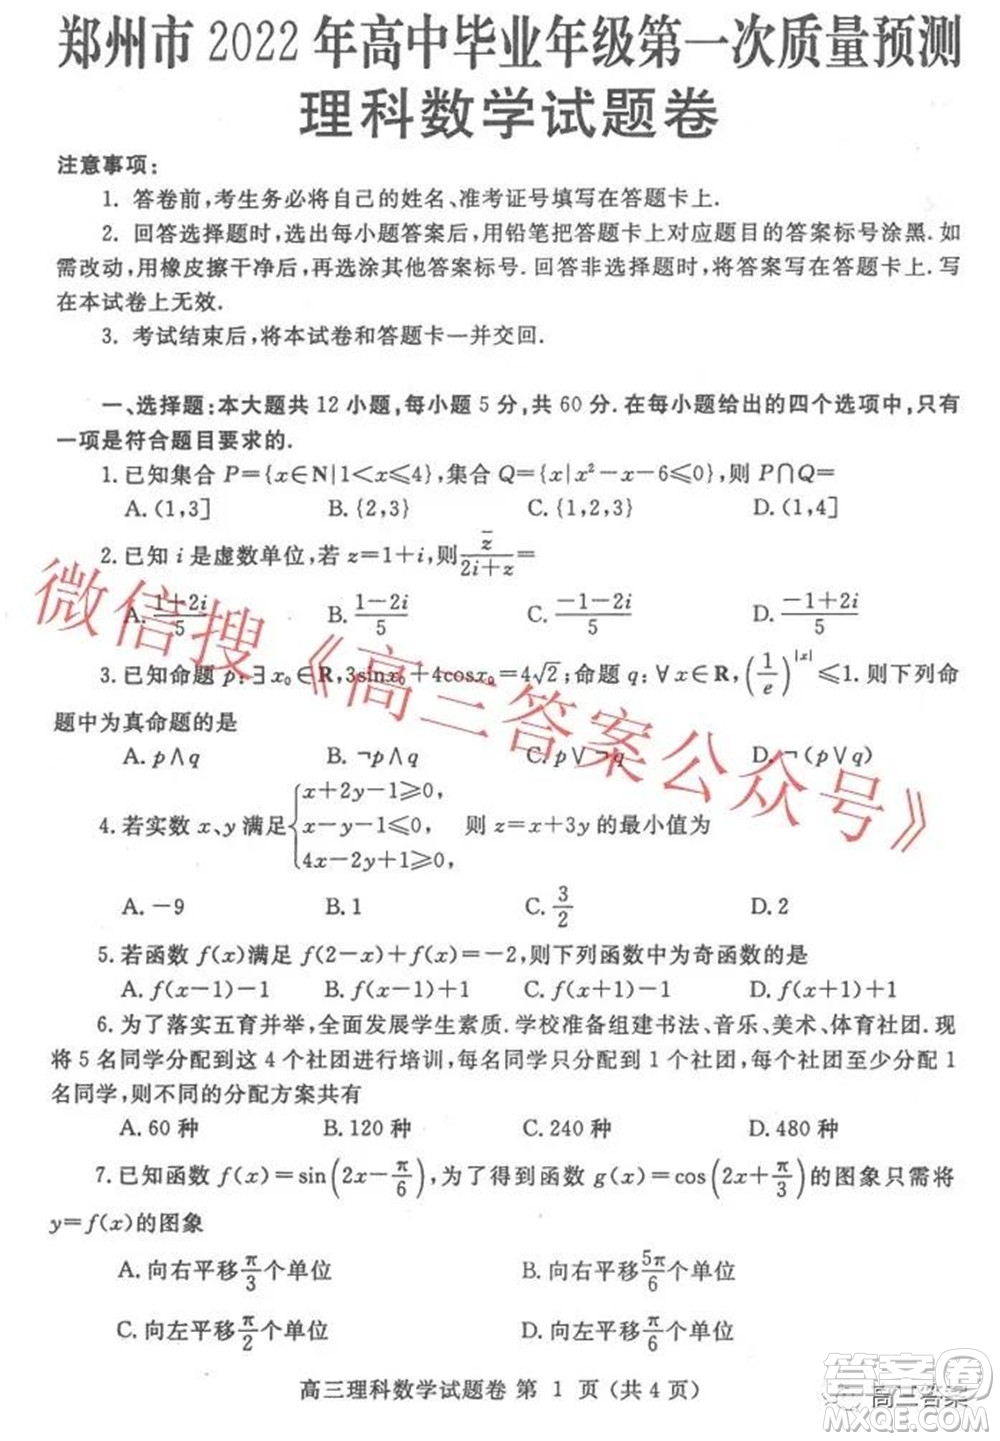 郑州市2022年高中毕业年级第一次质量预测
理科数学试题卷
注意事项:
1. 答卷前,考生务必将自己的姓名、准考证号填写在答题卡上.
2. 回答选择题时,选出每小题答案后,用铅笔把答题卡上对应题目的答案标号涂黑.如
需改动,用橡皮擦干净后,再选涂其他答案标号.回答非选择题时,将答案写在答题卡上.写
在本试卷上无效.
3. 考试结束后,将本试卷和答题卡一并交回.
一、选择题:本大题共12小题,每小题5分,共60分.在每小题给出的四个选项中,只有
一项是符合题目要求的.
1.已知集合 P={x∈N|1<x≤4},集合 Q={x|x²-x-6≤0},则 P∩Q=
A.(1,3] B.{2,3} C.{1,2,3} D.(1,4]
2.已知 i 是虚数单位,若 z=1+i,则 z̄/(2i+z)=
A. (1+2i)/5 B. (1-2i)/5 C. (-1-2i)/5 D. (-1+2i)/5
3.已知命题 p:∃x₀∈R,3sinx₀+4cosx₀=4√2;命题 q:∀x∈R,(1/e)^|x|≤1.则下列命
题中为真命题的是
A.p∧q B.¬p∧q C.p∨¬q D.¬(p∨q)
4.若实数 x、y 满足{x+2y-1≥0, x-y-1≤0, 4x-2y+1≥0, 则 z=x+3y 的最小值为
A.-9 B.1 C. 3/2 D.2
5.若函数 f(x)满足 f(2-x)+f(x)=-2,则下列函数中为奇函数的是
A.f(x-1)-1 B.f(x+1)-1 C.f(x-1)+1 D.f(x+1)+1
6.为了落实五育并举,全面发展学生素质.学校准备组建书法、音乐、美术、体育社团.现
将5名同学分配到这4个社团进行培训,每名同学只分配到1个社团,每个社团至少分配1
名同学,则不同的分配方案共有
A.60种 B.120种 C.240种 D.480种
7.已知函数 f(x)=sin(2x-π/6),为了得到函数 g(x)=cos(2x+π/3)的图象只需将
y=f(x)的图象
A.向右平移π/3个单位 B.向右平移5π/6个单位
C.向左平移π/2个单位 D.向左平移π/6个单位
高三理科数学试题卷 第 1 页(共4页)
微信搜《高三答案公众号》
高三答案
答案圈
MXQE.COM